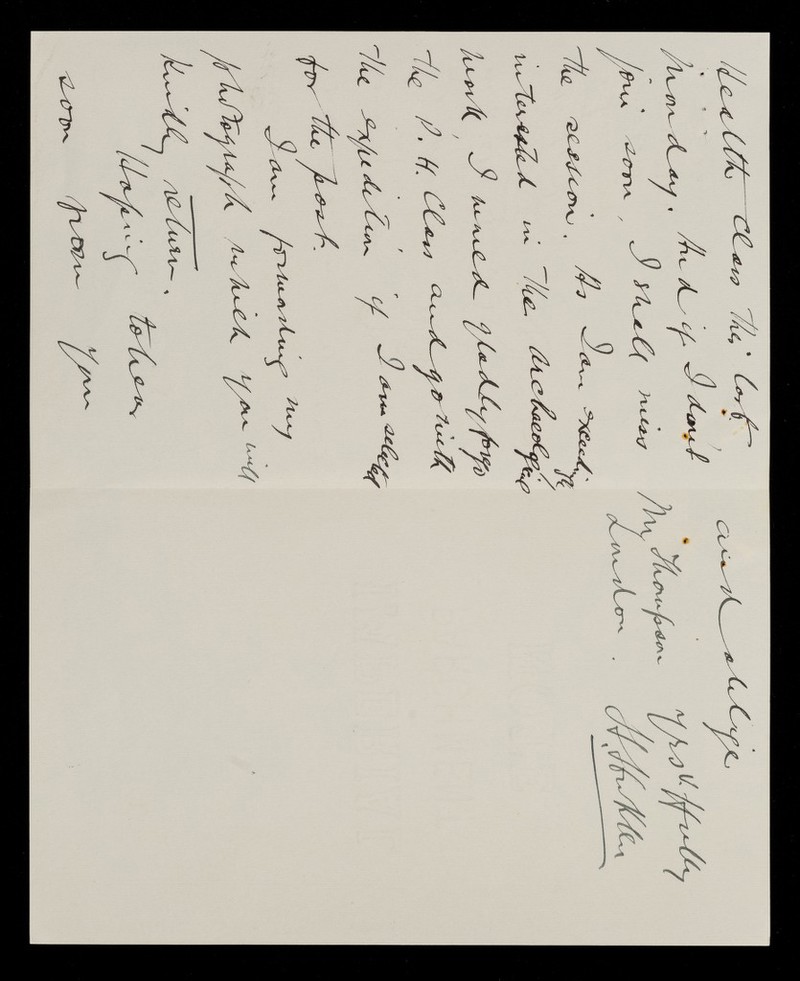 Health Class this last
Monday. And if I don't
join soon, I shall miss
the session. As I am exceedingly
interested in the archaeological
work I would gladly forgo
the P. H. Class and go with
the expedition if I am selected
for the post.
I am forwarding my
photograph which you will
kindly return.
Hoping to hear
soon from you
and oblige
Yrs v. truly
H.
Mr Thompson
London.